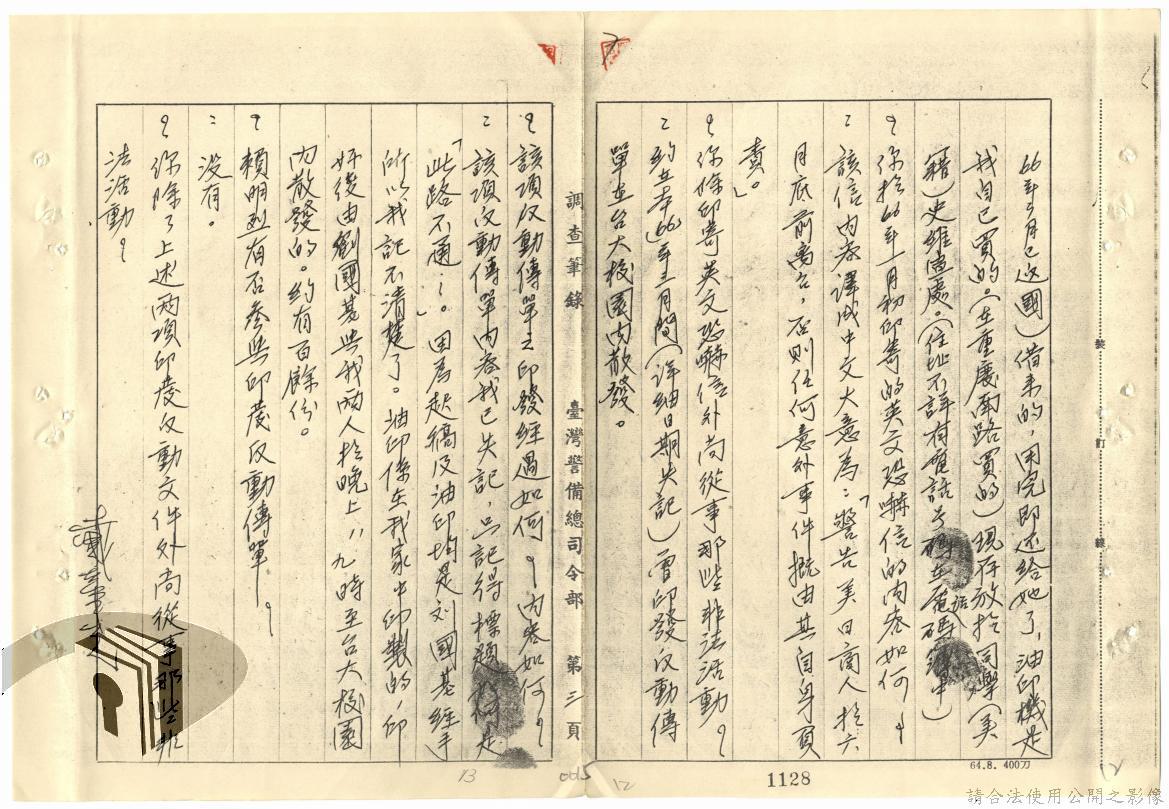 66年2月已返國）借來的，用完即还給她了，油印機是
我自己買的。（在重慶南路買的）現存放於同學（美
籍）史維億處。（住址不詳有電話号碼在號碼簿中）
？你於66年一月初印寄的英文恐嚇信的內容如何？
：該信內容譯成中文大意為：「警告美日商人於六
月底前离台，否則任何意外事件概由其自身負
責。」
？你除印寄英文恐嚇信外尚從事那些非法活動？
：約在本（66）年二月間（详細日期失記）曾印發反動傳
單在台大校園內散發。
調查筆錄 臺灣警備總司令部 第三頁
？該項反動傳單之印發經過如何？內容如何？
：該項反動傳單內容我已失記，只記得標題是
「此路不通…」。因為起稿及油印均是刘國基經手
所以我記不清楚了。油印係在我家中印製的，印
好後由劉國基與我两人於晚上八、九時至台大校園
內散發的。約有百餘份。
？賴明烈有否參與印發反動傳單？
：没有。
？你除了上述两項印發反動文件外尚從事那些非
法活動？
裝 訂 線
64.8. 400刀
1128
12
13
005
12
請合法使用公開之影像